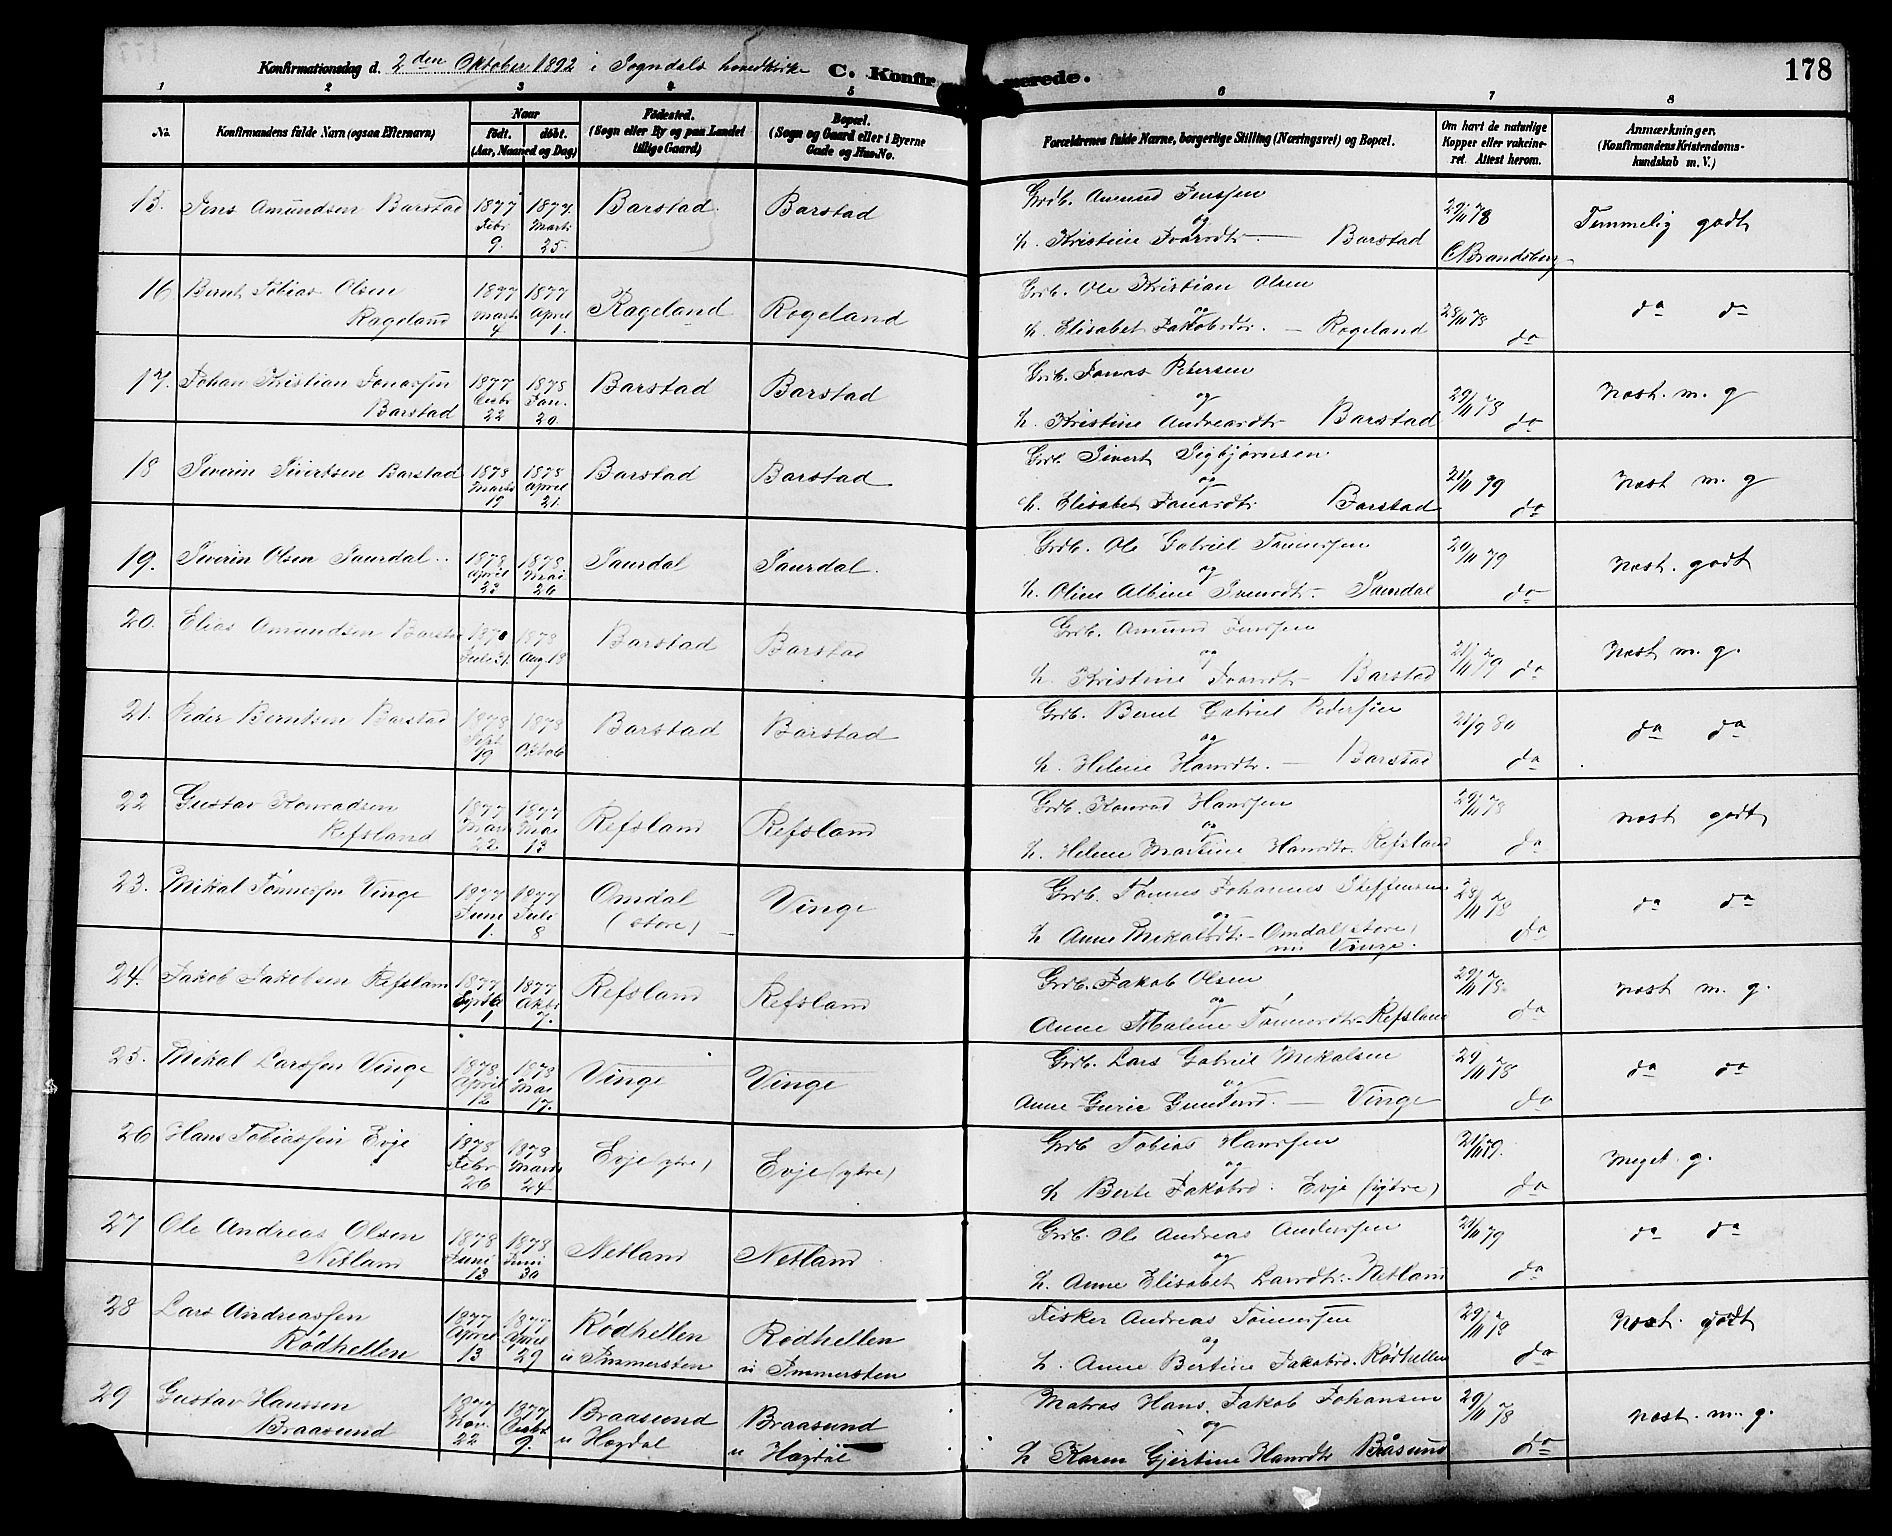 178
Konfirmationsdag d. 2den Oktober 1892 i Sogndals hovedkirke C. Konfirmerede.
1 2 3 4 5 6 7 8
No. Konfirmandens fulde Navn (ogsaa Efternavn) Naar født. døbt. (Aar, Maaned og Dag) Fødested. (Sogn eller By og paa Landet tillige Gaard) Bopæl. (Sogn og Gaard eller i Byerne Gade og Hus-No. Forældrenes fulde Navne, borgerlige Stilling (Næringsvei) og Bopæl. Om havt de naturlige Kopper eller vakcineret. Attest herom. Anmærkninger. (Konfirmandens Kristendomskundskab m. V.)
15. Jens Amundsen Barstad 1877 Febr 9. 1877. Marts 25. Barstad Barstad Grdb. Amund Jenssen og h. Kristine Ivarsdtr. — Barstad 29/11 78 C Brandsberg Temmelig godt
16 Bernt Tobias Olsen Rageland 1877 Marts 4 1877 April 1. Rageland Rageland Grdb. Ole Kristian Olsen og h. Elisabet Jakobsdtr. — Rageland 28/11 78 do do do
17. Johan Kristian Jonassen Barstad 1877 Decbr 22 1878 Jan. 20. Barstad Barstad Grdb. Jonas Petersen og h. Kristine Andreasdtr Barstad 29/11 78 do Næst. m. g
18 Severin Sivertsen Barstad 1878 Marts 19 1878 April 21. Barstad Barstad Grdb. Sivert Sigbjørnsen og h. Elisabet Jonasdtr Barstad 21/11 79 do Næst m. g
19. Severin Olsen Saurdal 1878 April 23 1878 Mai 26 Saurdal Saurdal. Grdb. Ole Gabriel Tønnessen og h. Oline Albine Ivarsdtr. — Saurdal 20/11 79 do Næst. godt
20. Elias Amundsen Barstad 1878 Juli 31. 1878 Aug. 18 Barstad Barstad Grdb. Amund Jenssen og h. Kristine Ivarsdtr Barstad 21/11 79 do Næst m. g.
21. Peder Berntsen Barstad 1878 Sept 19 1878 Oktob Barstad Barstad Grdb. Bernt Gabriel Pedersen og h. Helene Hansdtr. — Barstad 21/9 80 do do do
22 Gustav Konradsen Refsland 1877 Mars 22 1877 Mai 13 Refsland Refsland Grdb. Konrad Hanssen og h. Helene Martine Hansdtr. Refsland 29/11 78 do Næst godt
23. Mikal Tønnessen Vinge 1877 Juni 1. 1877 Juli 8 Omdal (store) Vinge Grdb. Tønnes Johannes Steffensen og h Anne Mikalsdtr — Omdal (store) nu Vinge. 28/11 78 do do do
24. Jakob Jakobsen Refsland 1877 1 1877 Oktbr 7. Refsland Refsland Grdb. Jakob Olsen og Anne Malene Tønnesdtr. Refsland 29/11 78. do Næst m. g.
25. Mikal Larssen Vinge 1878 April 12 1878 Mai 17. Vinge Vinge Grdb. Lars Gabriel Mikalsen og Anne Gurie — Vinge 29/11 78 do do do
26 Hans Tobiassen Evje 1878 Febr 26 1878 Marts 24. Evje (ytre) Evje (ytre) Grdb Tobias Hanssen og h Berte Jakobsd. Evje (ytre) 21/11 79. do Meget g.
27 Ole Andreas Olsen Netland 1878 Juni 13 1878 Juni 30 Netland Netland Grdb. Ole Andreas Anderssen og h. Anne Elisabet Larsdtr. Netland 21/11 79 do do do
28 Lars Andreassen Rødhellen 1877 April 13 1877 April 29 Rødhellen u Immersten Rødhellen u Immersten Fisker Andreas Tønnessen og h. Anne Bertine Jakobsd. Rødhellen 29/11 78 do Næst. godt
29 Gustav Hanssen Braasund 1877 Nov. 22 1877 Decbr 9. Braasund u Hægdal Braasund u Hægdal Matros Hans Jakob Johansen og h Karen Gjertine Hansdtr Båsund 29/11 78 do Næst. m. g.